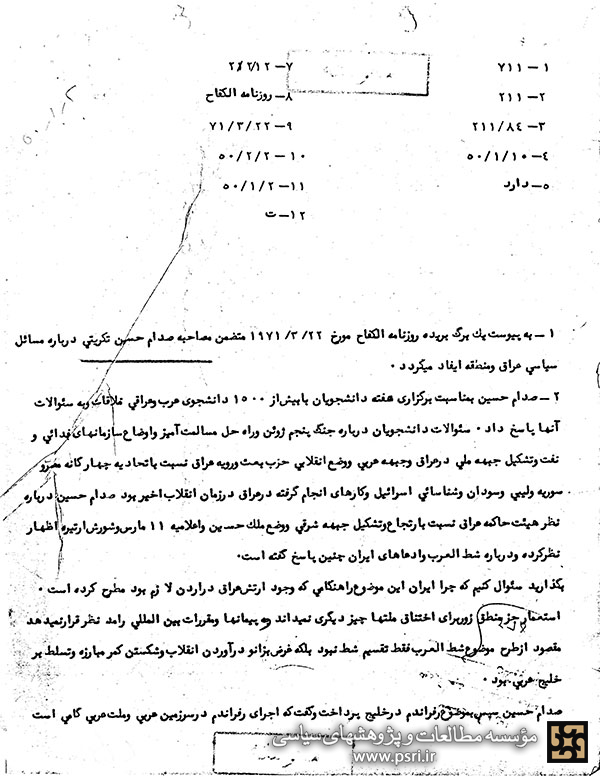 ۱ – ۷۱۱
۲– ۲۱۱
۳– ۲۱۱/۸۴
۴– ۵۰/۱/۱۰
۵– دارد
۷– ۲/۲/۱۲
۸– روزنامه الکفاح
۹– ۷۱/۳/۲۲
۱۰– ۵۰/۲/۲
۱۱– ۵۰/۱/۲
۱۲– ت
۱ – به پیوست یك برگ بریده روزنامه الکفاح مورخ ۱۹۷۱/۳/۲۲ متضمن مصاحبه صدام حسین تکریتي درباره مسائل
سیاسي عراق ومنطقه ایفاد میگردد ۰
۲ – صدام حسین بمناسبت برگزاری هفته دانشجویان بابیش از ۱۵۰۰ دانشجوی عرب وعراقي ملاقات وبه سئوالات
آنها پاسخ داد ۰ سئوالات دانشجویان درباره جنگ پنجم ژوئن وراه حل مسالمت آمیز واوضاع سازمانهای فدائي و
نفت وتشکیل جبهه ملي درعراق وجبهه عربي ووضع انقلابي حزب بعث ورویه عراق نسبت باتحادیه چهارگانه مصرو
سوریه ولیبي وسودان وشناسائي اسرائیل وکارهای انجام گرفته درعراق درزمان انقلاب اخیر بود صدام حسین درباره
نظر هیئت حاکمه عراق نسبت بارتجاع وتشکیل جبهه شرقي ووضع ملك حسین واعلامیه ۱۱ مارس وشورش ارتیره اظهار
نظرکرده ودرباره شط العرب وادعاهای ایران چنین پاسخ گفته است۰
بگذارید سئوال کنیم که چرا ایران این موضوع راهنگامي که وجود ارتش عراق دراردن لازم بود مطرح کرده است ۰
استعمار جز منطق زوربرای اختناق ملتها چیز دیگری نمیداند وبه پیمانها ومقررات بین المللي رامد نظر قرارنمیدهد
مقصود ازطرح موضوع شط العرب فقط تقسیم شط نبود بلکه غرض بزانو درآوردن انقلاب وشکستن کمر مبارزه وتسلط بر
خلیج عربي بود ۰
صدام حسین سپس بموضوع رفراندم درخلیج پرداخت وگفت که اجرای رفراندم درسرزمین عربي وملت عربي گامي است
مؤسسه مطالعات و پژوهشهای سیاسی
www.psri.ir